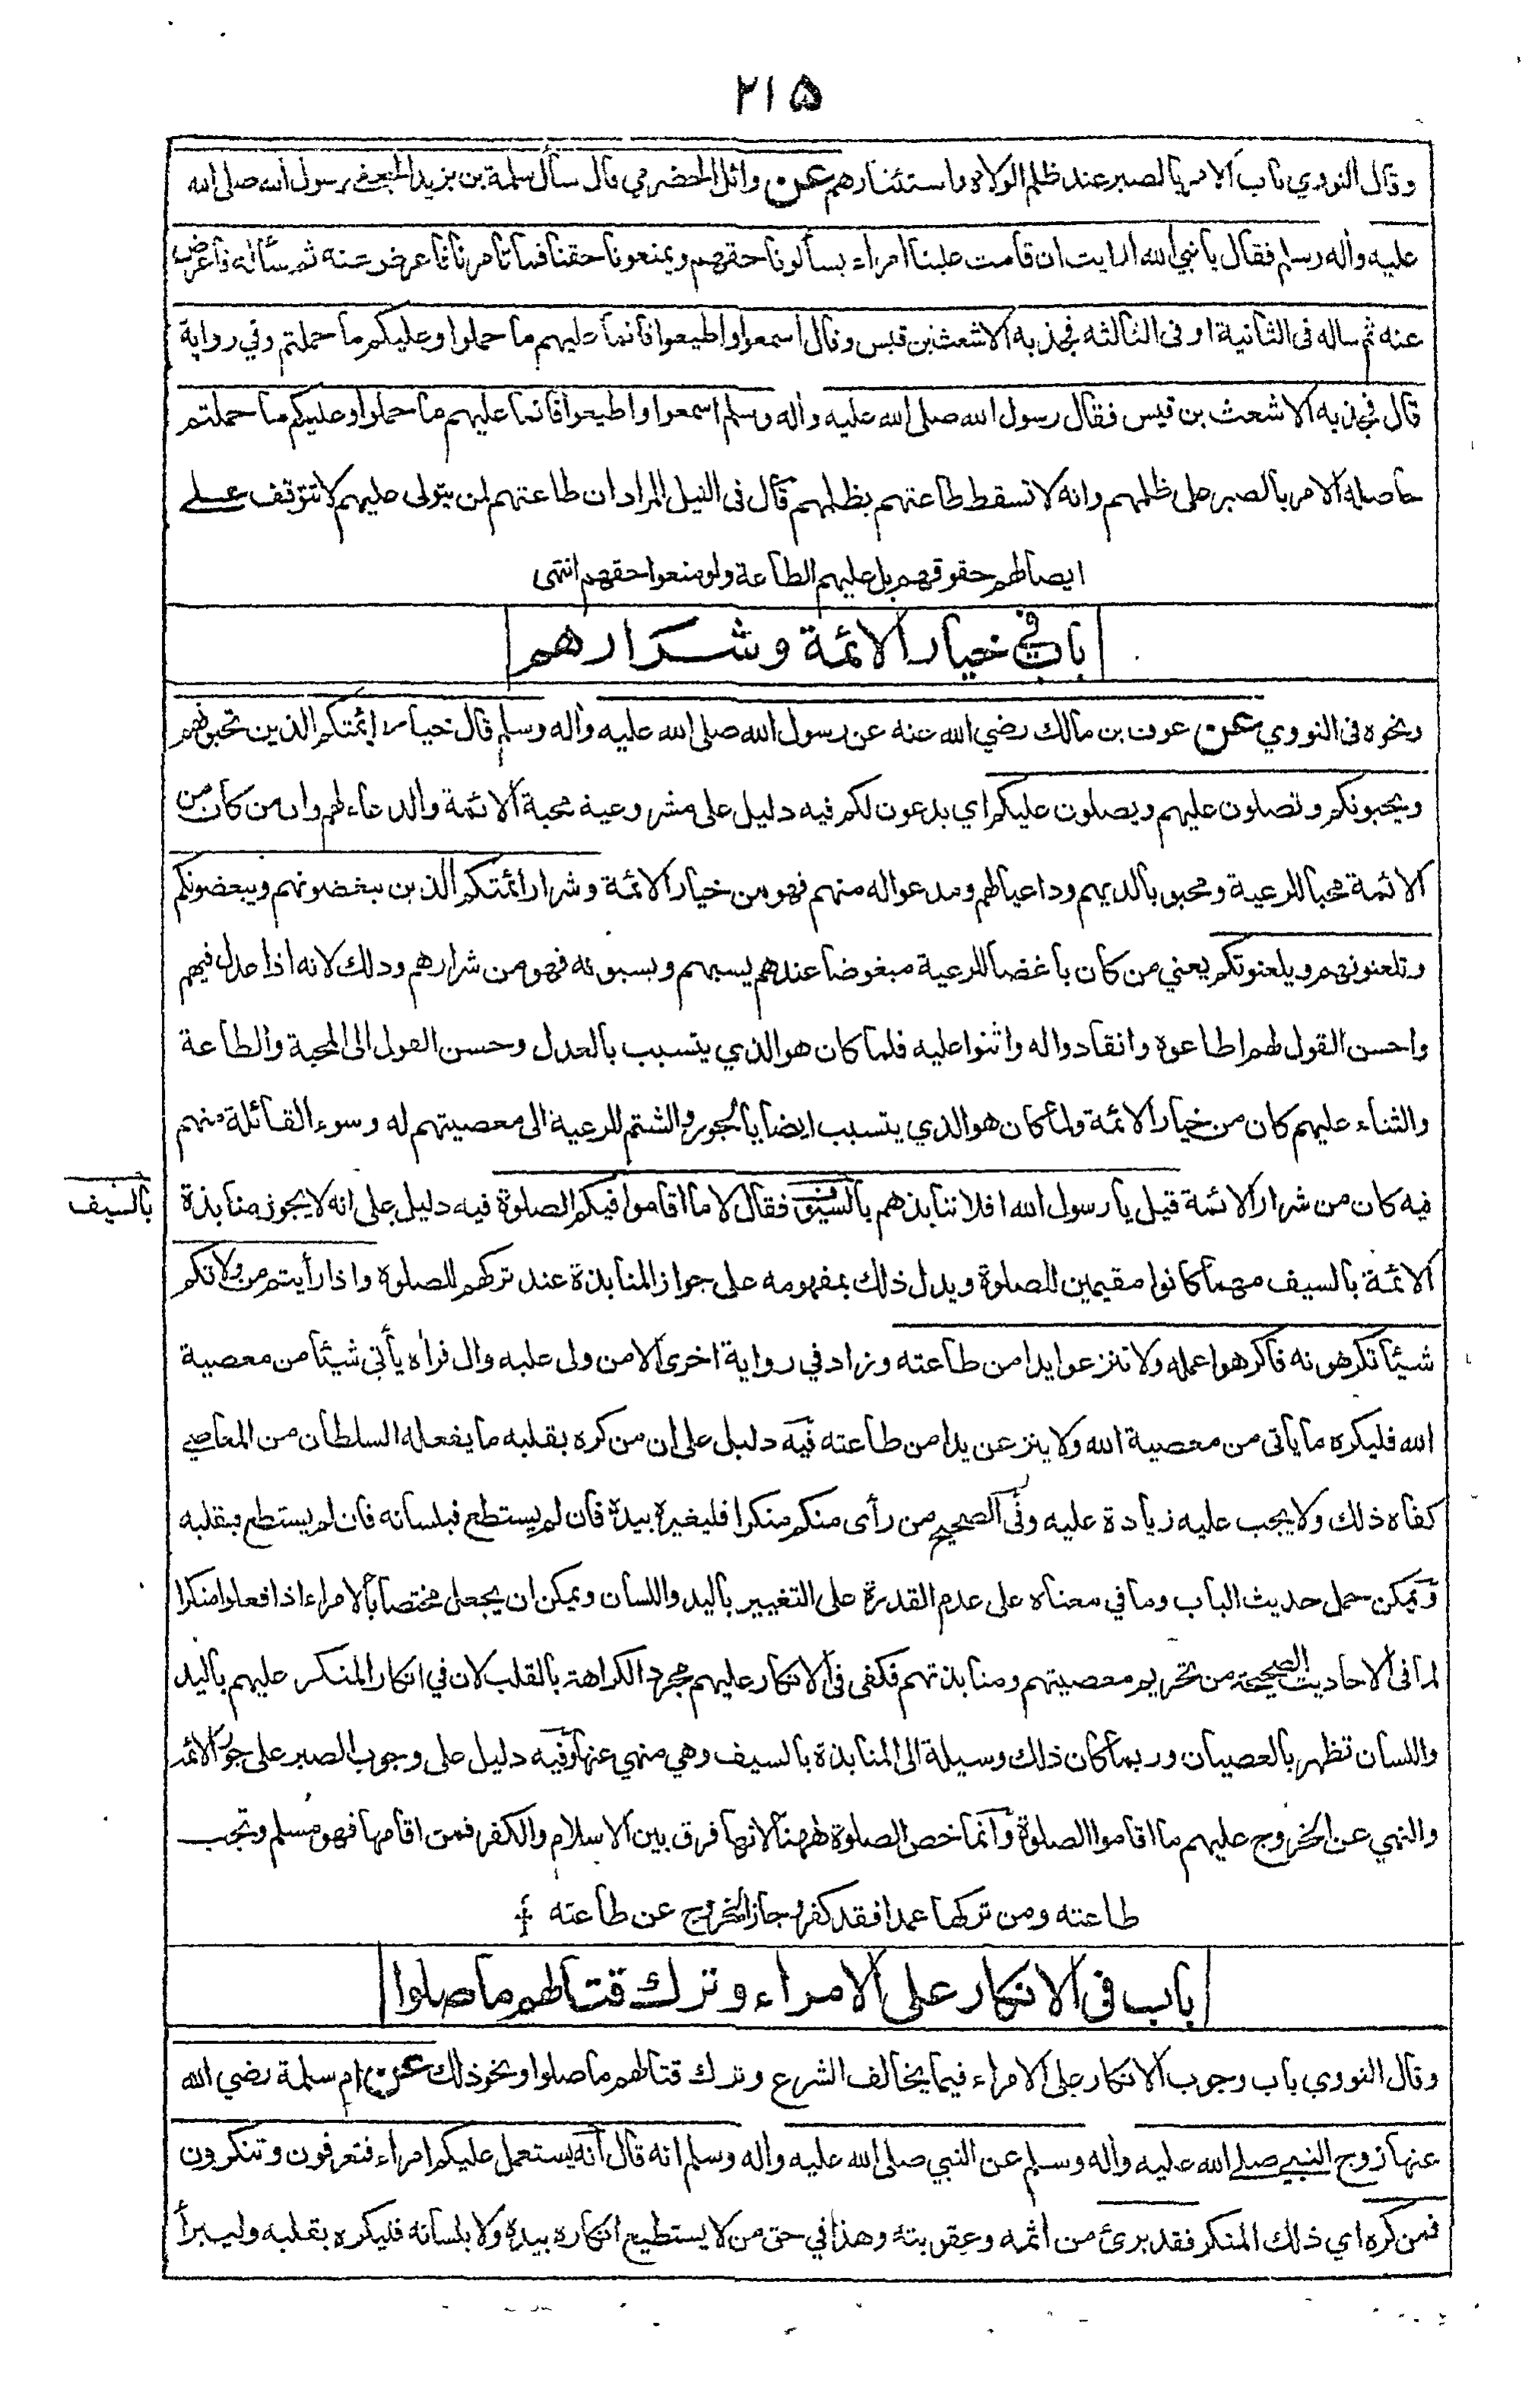 ٢١٥
وقال النووي باب الامر بالصبر عند ظلم الولاة واستئثارهم عن وائل الحضرمي قال سأل سلمة بن يزيد الجعفي رسول الله صلى الله
عليه وأله وسلم فقال يا نبي الله ارايت ان قامت علينا امراء يسألونا حقهم ويمنعونا حقنا فما تأمرنا فأعرض عنه ثم سأله فأعرض
عنه ثم ساله فى الثانية او فى الثالثه فجذبه الاشعث بن قيس وقال اسمعوا واطيعوا فانما عليهم ما حملوا وعليكم ما حملتم وفي رواية
قال فجذبه الاشعث بن قيس فقال رسول الله صلى الله عليه وأله وسلم اسمعوا واطيعوا فانما عليهم ما حملوا وعليكم ما حملتم
حاصله الامر بالصبر على ظلمهم وانه لا تسقط طاعتهم بظلمهم قال فى النيل المراد ان طاعتهم لمن يتولى عليهم لا تتوقف على
ايصالهم حقوقهم بل عليهم الطاعة ولو منعوا حقهم انتهى
باب في خيار الائمة وشرارهم
ونحوه فى النووي عن عوف بن مالك رضي الله عنه عن رسول الله صلى الله عليه وأله وسلم قال خيار ائمتكم الذين تحبونهم
ويحبونكم وتصلون عليهم ويصلون عليكم اي يدعون لكم فيه دليل على مشروعية محبة الائمة والدعاء لهم وان من كان من
الائمة محبا للرعية ومحبوبا لديهم وداعيا لهم ومدعوا له منهم فهو من خيار الائمة وشرار ائمتكم الذين تبغضونهم ويبغضونكم
وتلعنونهم ويلعنونكم يعني من كان باغضا للرعية مبغوضا عندهم يسبهم ويسبونه فهو من شرارهم وذلك لانه اذا عدل فيهم
واحسن القول لهم اطاعوه وانقادوا له واثنوا عليه فلما كان هو الذي يتسبب بالعدل وحسن القول الى المحبة والطاعة
والثناء عليهم كان من خيار الائمة ولما كان هو الذي يتسبب ايضا بالجور والشتم للرعية الى معصيتهم له وسوء القائلة منهم
فيه كان من شرار الائمة قيل يا رسول الله افلا ننابذهم بالسيف فقال لا ما اقاموا فيكم الصلوة فيه دليل على انه لا يجوز منابذة
بالسيف
الائمة بالسيف مهما كانوا مقيمين للصلوة ويدل ذلك بمفهومه على جواز المنابذة عند تركهم للصلوة واذا رأيتم من ولاتكم
شيئا تكرهونه فاكرهوا عمله ولا تنزعوا يدا من طاعته وزاد في رواية اخرى الا من ولى عليه وال فراه يأتي شيئا من معصية
الله فليكره ما يأتى من معصية الله ولا ينزعن يدا من طاعته فيه دليل على ان من كره بقلبه ما يفعله السلطان من المعاصي
كفاه ذلك ولا يجب عليه زيادة عليه وفى الصحيح من رأى منكم منكرا فليغيره بيدة فان لم يستطع فبلسانه فان لم يستطع فبقلبه
ويمكن حمل حديث الباب وما في معناه على عدم القدرة على التغيير باليد واللسان ويمكن ان يجعل مختصا بالامراء اذا فعلوا منكرا
لما فى الاحاديث الصحيحة من تحريم معصيتهم ومنابذتهم فكفى فى الانكار عليهم مجرد الكراهة بالقلب لان في انكار المنكر عليهم باليد
واللسان تظهر بالعصيان وربما كان ذلك وسيلة الى المنابذة بالسيف وهي منهي عنها وفيه دليل على وجوب الصبر على جور الائمة
والنهي عن الخروج عليهم ما اقاموا الصلوة وانما خص الصلوة ههنا لانها فرق بين الاسلام والكفر فمن اقامها فهو مسلم وتجب
طاعته ومن تركها عمدا فقد كفر وجاز الخروج عن طاعته
باب فى الانكار على الامراء وترك قتالهم ما صلوا
وقال النووي باب وجوب الانكار على الامراء فيما يخالف الشرع وترك قتالهم ما صلوا ونحو ذلك عن ام سلمة رضي الله
عنها زوج النبي صلى الله عليه وأله وسلم عن النبي صلى الله عليه وأله وسلم انه قال انه يستعمل عليكم امراء فتعرفون وتنكرون
فمن كره اي ذلك المنكر فقد برئ من اثمه وعقوبته وهذا في حق من لا يستطيع انكاره بيده ولا بلسانه فليكره بقلبه وليبرأ